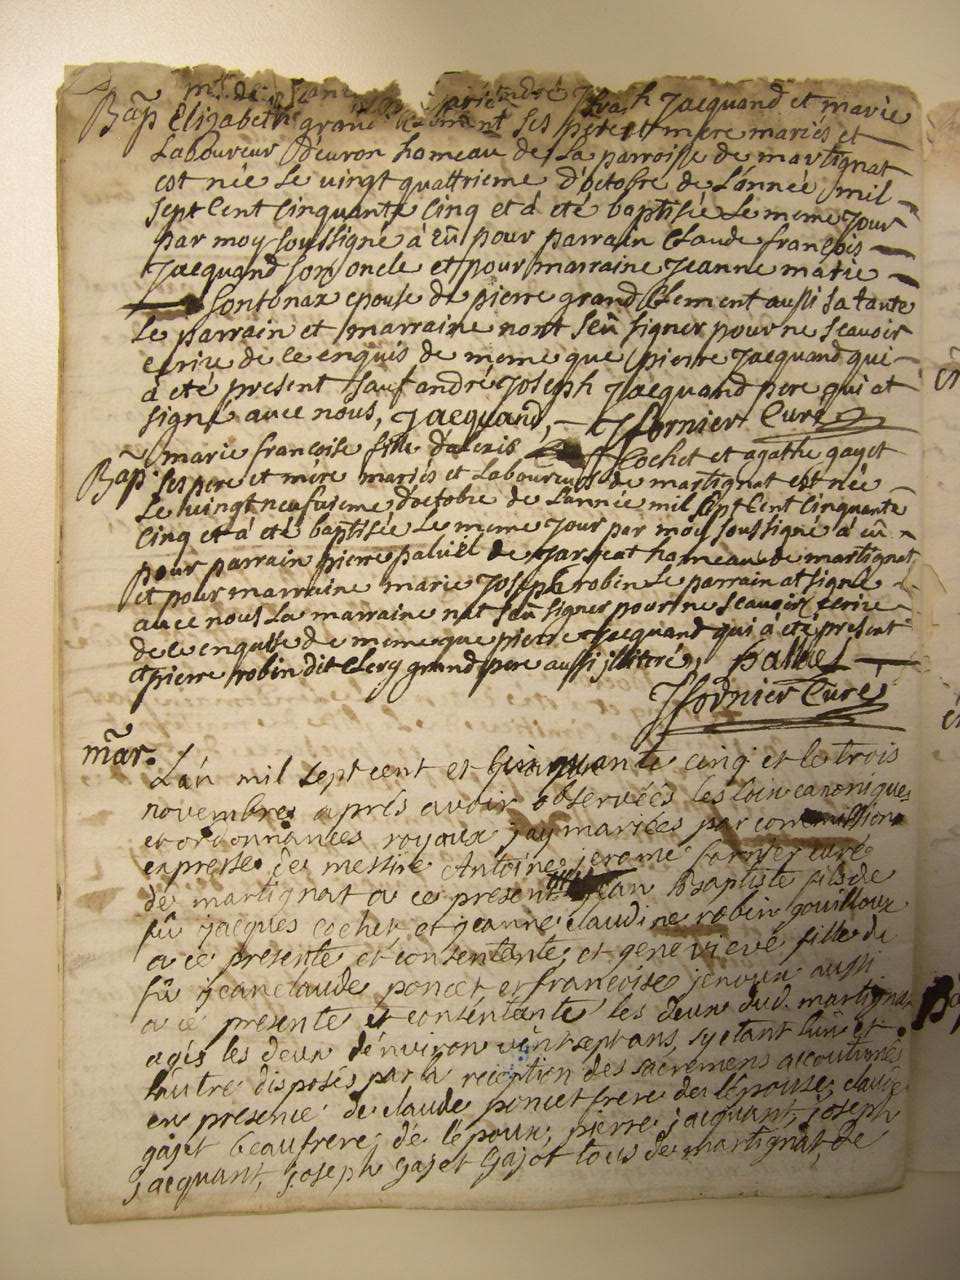 Jacquand et marie
Bap Elizabeth grand Clement ses pere et mere mariés et
Laboureur D'evron hameau de La parroisse de martignat
est née Le vingt quattrieme d'octobre de L'année mil
sept Cent Cinquante Cinq et à eté baptisée Le meme Jour
par moy soussigné à eû pour parrain Claude françois
Jacquand son oncle et pour marraine Jeanne marie
Sontonax epouse de pierre grand Clement aussi sa tante
Le parrain et marraine nont sçeu signer pour ne sçeavoir
ecrire de ce enquis de meme que pierre Jacquand qui
à eté present sauf andré Joseph Jacquand pere qui at
signé avec nous, Jacquand, JJfornier Curé
marie francoise fille d'alexis Cochet et agathe gayet
Bap ses pere et mere mariés et Laboureurs de martignat est née
Le vingt neufuieme d'octobre de L'année mil sept Cent Cinquante
Cinq et à eté baptisée Le meme Jour par moy soussigné à eû
pour parrain pierre de hameau de martignat
et pour marraine marie Joseph robin Le parrain at signé
avec nous La marraine nat sçeu signer pour ne sceavoir ecrire
de ce enquise de meme que pierre Jacquand qui à eté present
et pierre robin dit Clery grand pere aussi jlliteré,
JJfornier Curé
mar. L'an mil sept cent et cinquante cinq et le trois
novembre aprés avoir observéés les loix canoniques
et ordonnances royaux j'ay mariées par commission
expresse de messire Antoine jerome fornier curé
de martignat a ce present jean Baptiste fils de
fû jacques cochet et jeanne claudine robin gouilloux
a ce presente et consentante, et genevieve fille de
fû jean claude poncet et francoise jenoux aussi
a ce presente et consentante les deux dud. martignat
agés les deux d'environ vint sept ans, sy etant l'un et
l'autre disposés par la reception des sacremens accoutumés
en presence de claude poncet frere de l'épouse, claude
gajet beaufrere de l'époux, pierre jacquant, joseph
jacquant, joseph gajet Gajot tous de martignat, de